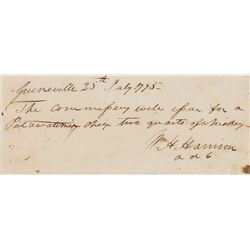 Greeneville 25th July 1795
The commissary will issue for a
Putawatimy Chief two quarts of whiskey
Wm H. Harrison
a d C